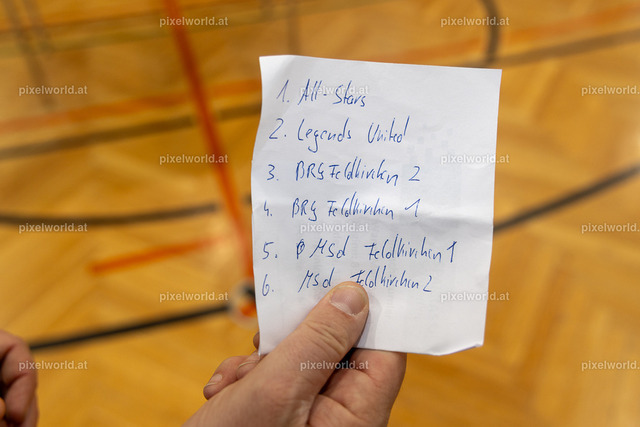 pixelworld.at pixelworld.at pixelworld.at
1. All-Stars
pixelworld.at pixelworld.at
2. Legends United
pixelworld.at pixelworld.at pixelworld.at
3. BRG Feldkirchen 2
4. BRG Feldkirchen 1
pixelworld.at pixelworld.at
5. MSd Feldkirchen 1
6. MSd Feldkirchen 2
pixelworld.at pixelworld.at pixelworld.at
pixelworld.at pixelworld.at pixelworld.at